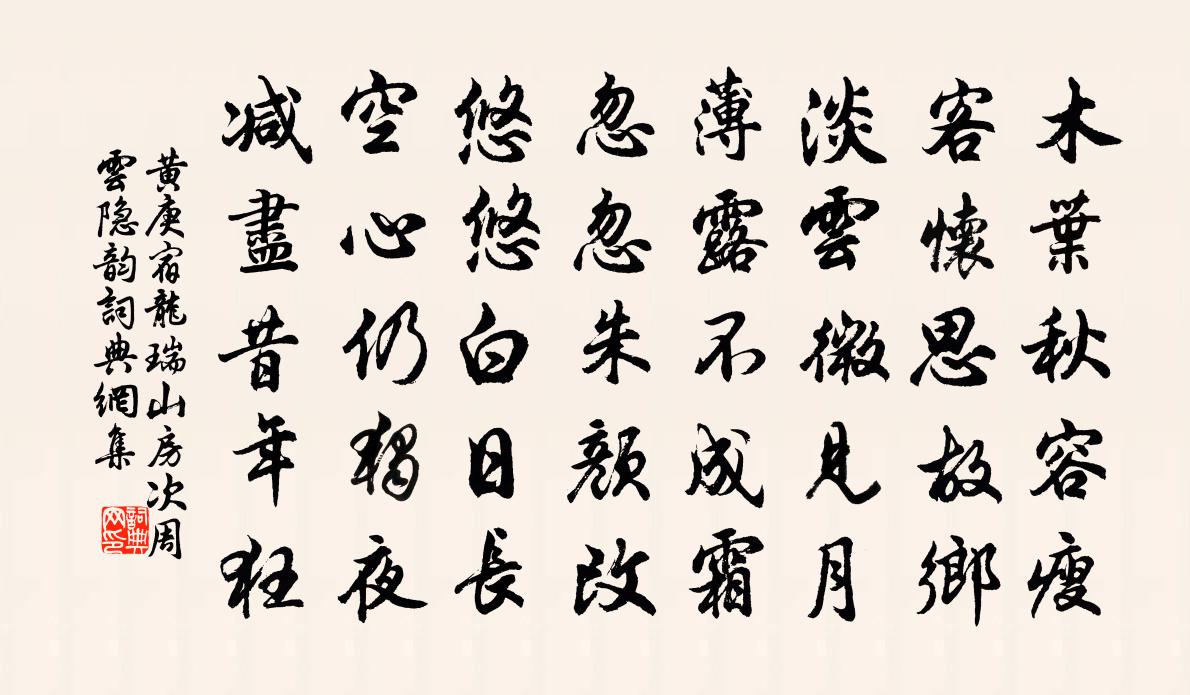 木葉秋容瘦
客懷思故鄉
淡雲微見月
薄露不成霜
忽忽朱顏改
悠悠白日長
空心仍獨夜
減盡昔年狂
黄庚宿龍瑞山房次周
雲隐韵詞典網集
詞典
网印